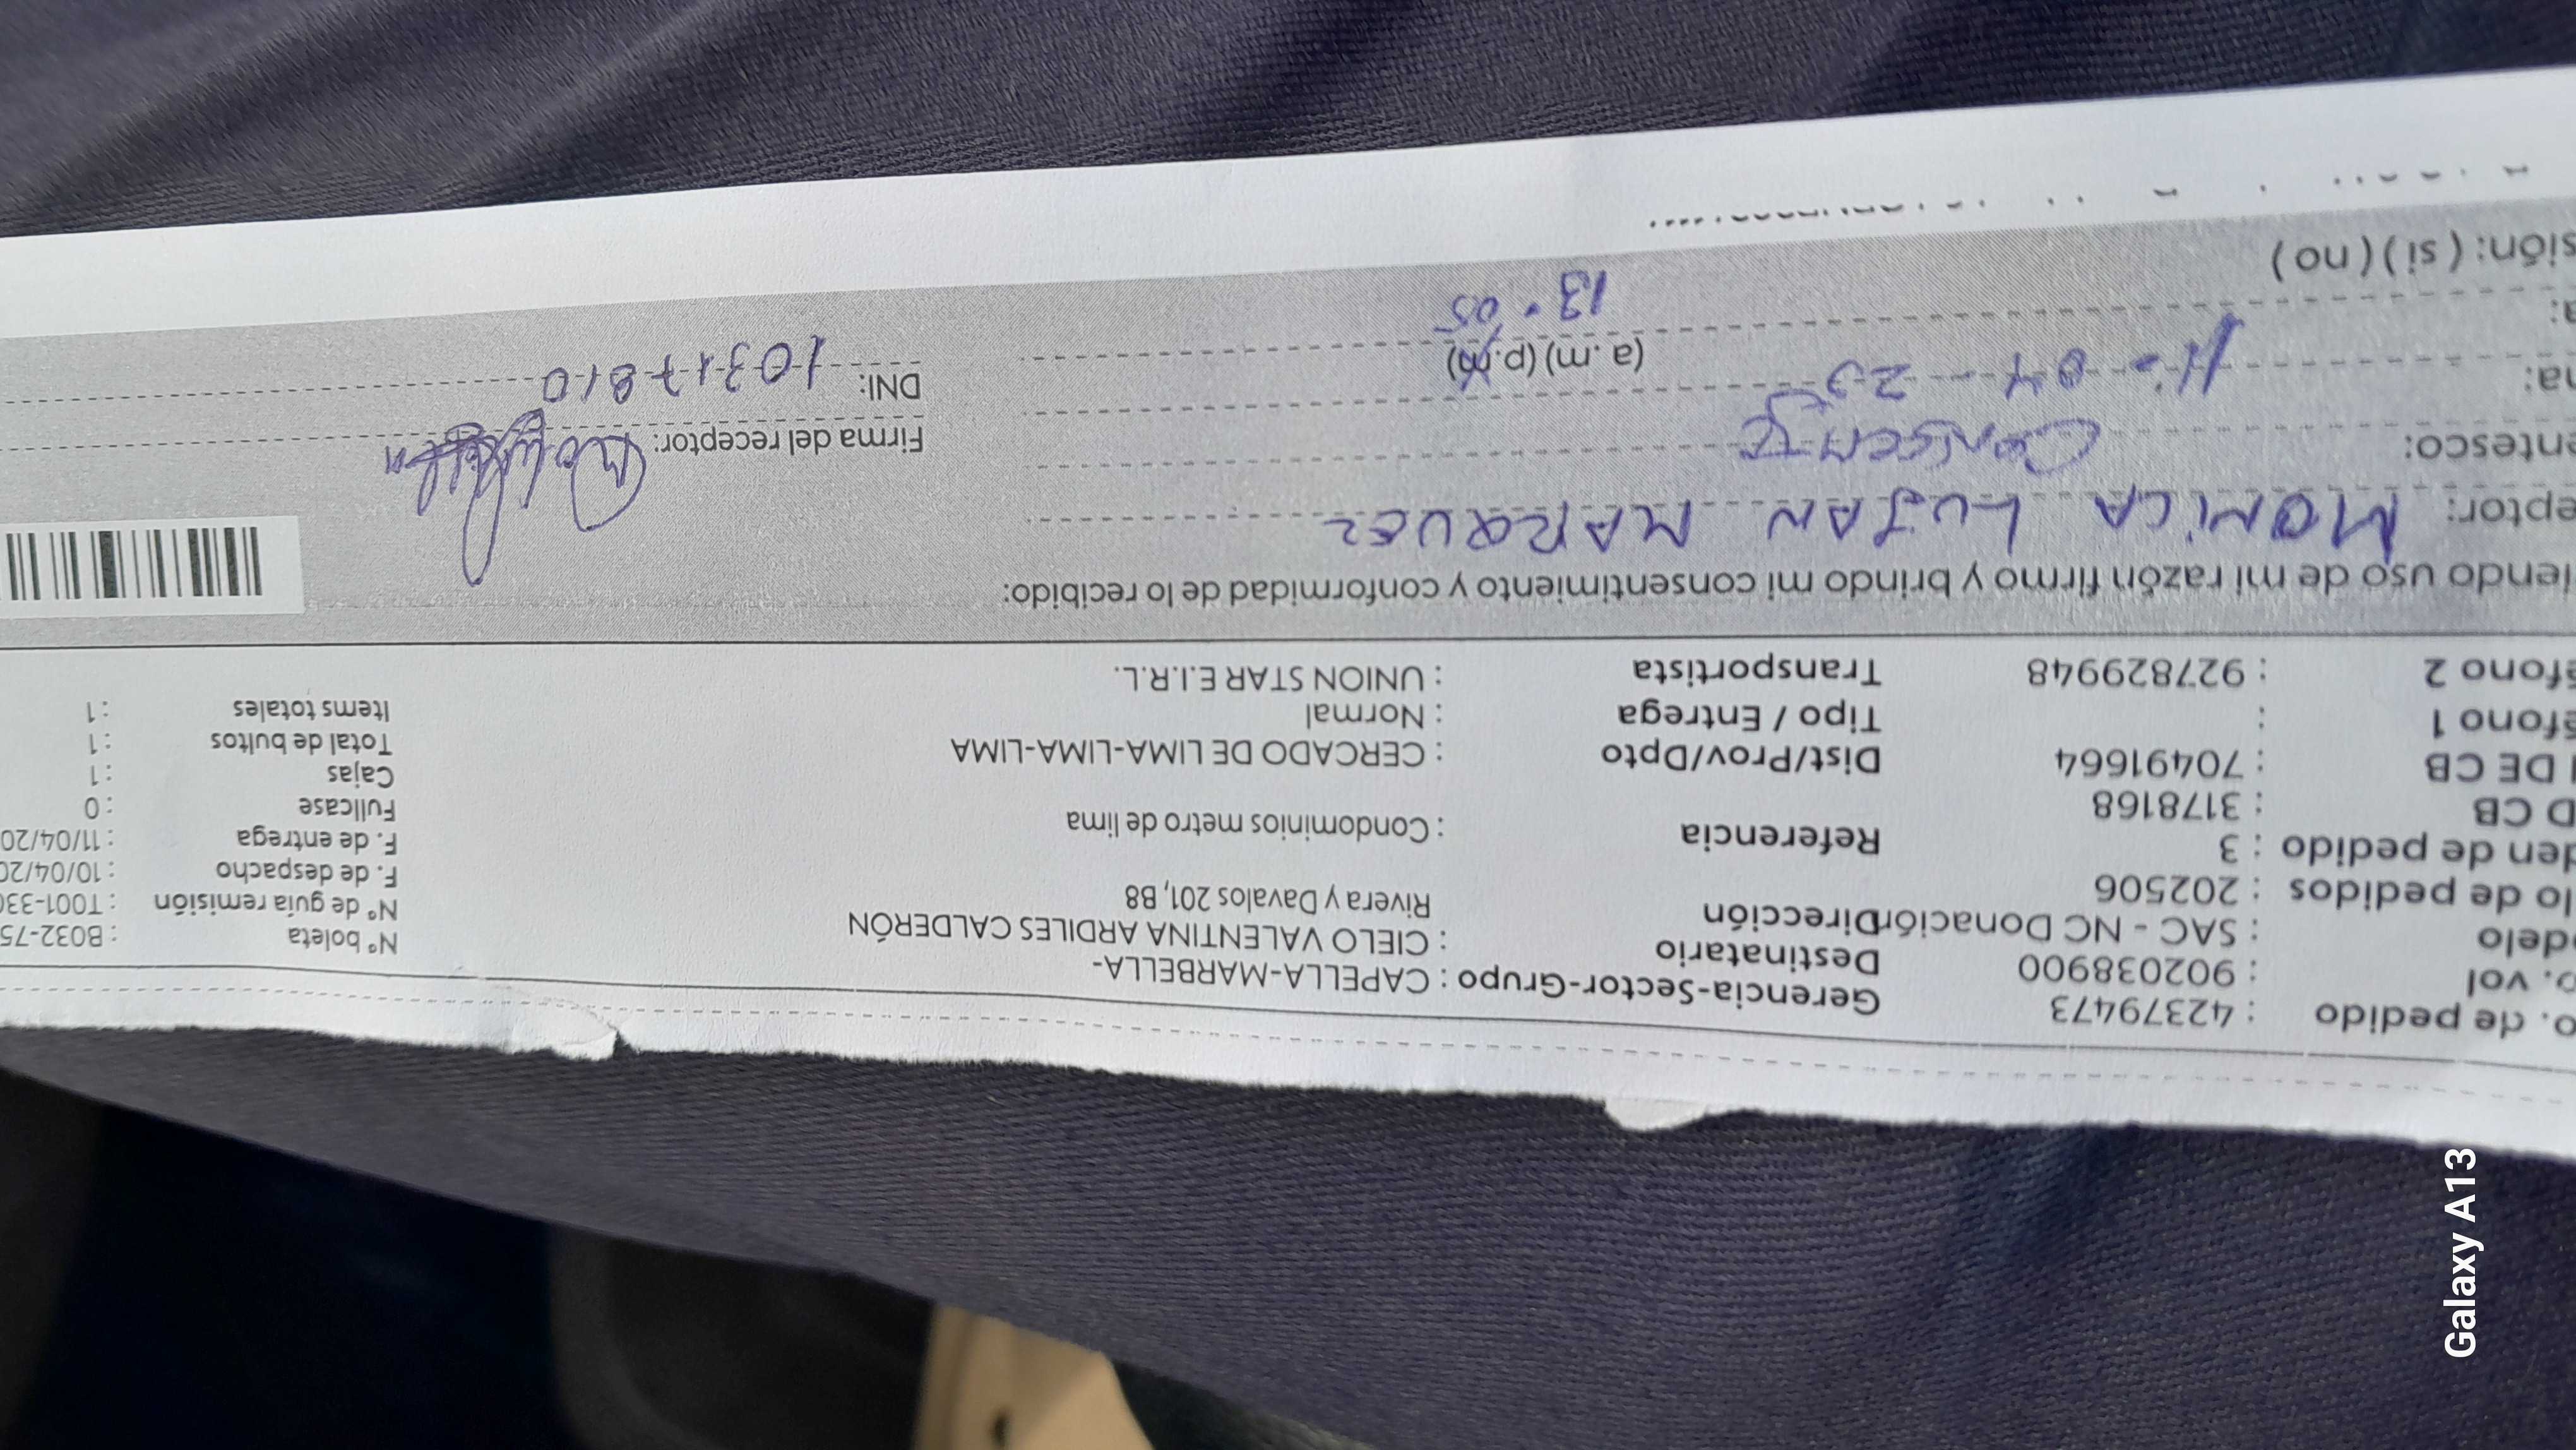 o. de pedido : 42379473 Gerencia-Sector-Grupo : CAPELLA-MARBELLA-
p. vol : 902038900 Destinatario : CIELO VALENTINA ARDILES CALDERÓN Nº boleta : B032-75
delo : SAC - NC Donación Dirección Rivera y Davalos 201, B8 Nº de guía remisión : T001-330
lo de pedidos : 202506 F. de despacho : 10/04/20
den de pedido : 3 Referencia : Condominios metro de lima F. de entrega : 11/04/20
D CB : 3178168 Fullcase : 0
I DE CB : 70491664 Dist/Prov/Dpto : CERCADO DE LIMA-LIMA-LIMA Cajas : 1
éfono 1 : Tipo / Entrega : Normal Total de bultos : 1
éfono 2 : 927829948 Transportista : UNION STAR E.I.R.L. Items totales : 1
iendo uso de mi razón firmo y brindo mi consentimiento y conformidad de lo recibido:
eptor: MONICA LUJAN MARQUEZ
entesco: Firma del receptor:
na: 11-04-25 (a.m) (p.m) DNI: 10317810
a: 13:05
sión: ( si ) ( no )
Galaxy A13